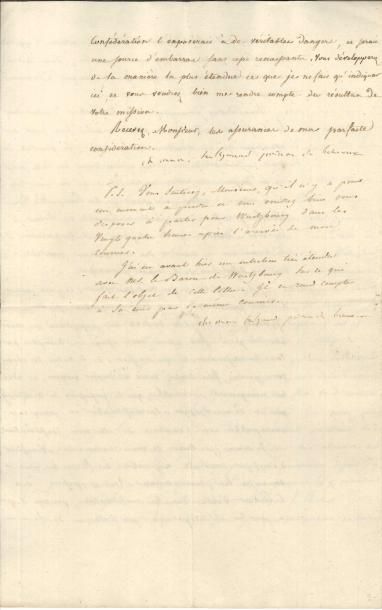 Confédération l'exposerait à de véritables dangers, ce serait
une source d'embarras sans cesse renaissants. Vous développerez
de la manière la plus étendue ce que je ne fais qu'indiquer
ici, et vous voudrez bien me rendre compte du résultat de
votre mission.
Recevez, Monsieur, les assurances de ma parfaite
considération.
P.S. Vous sentirez, Monsieur, qu'il n'y a pas
un moment à perdre et vous voudrez bien vous
disposer à partir pour Wurtzbourg dans les
vingt quatre heures après l'arrivée de mon
courrier.
J'ai eu avant hier un entretien très étendu
avec M. le Baron de Wurtzbourg sur ce qui
fait l'objet de cette lettre. Il en rend compte
à sa cour par le même courrier.